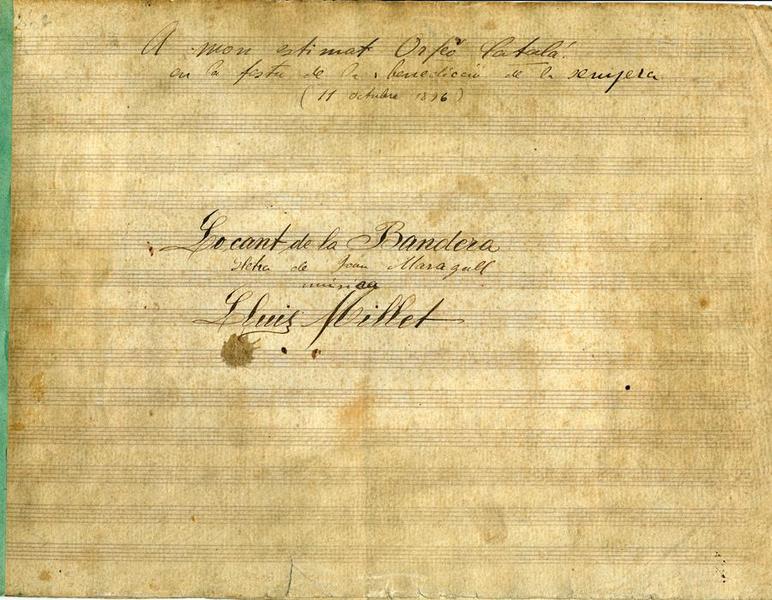 A mon estimat Orfeó Catalá!
en la festa de la benedicció de la senyera
(11 octubre 1896)
Lo cant de la Bandera
lletra de Joan Maragall
música
Lluis Millet